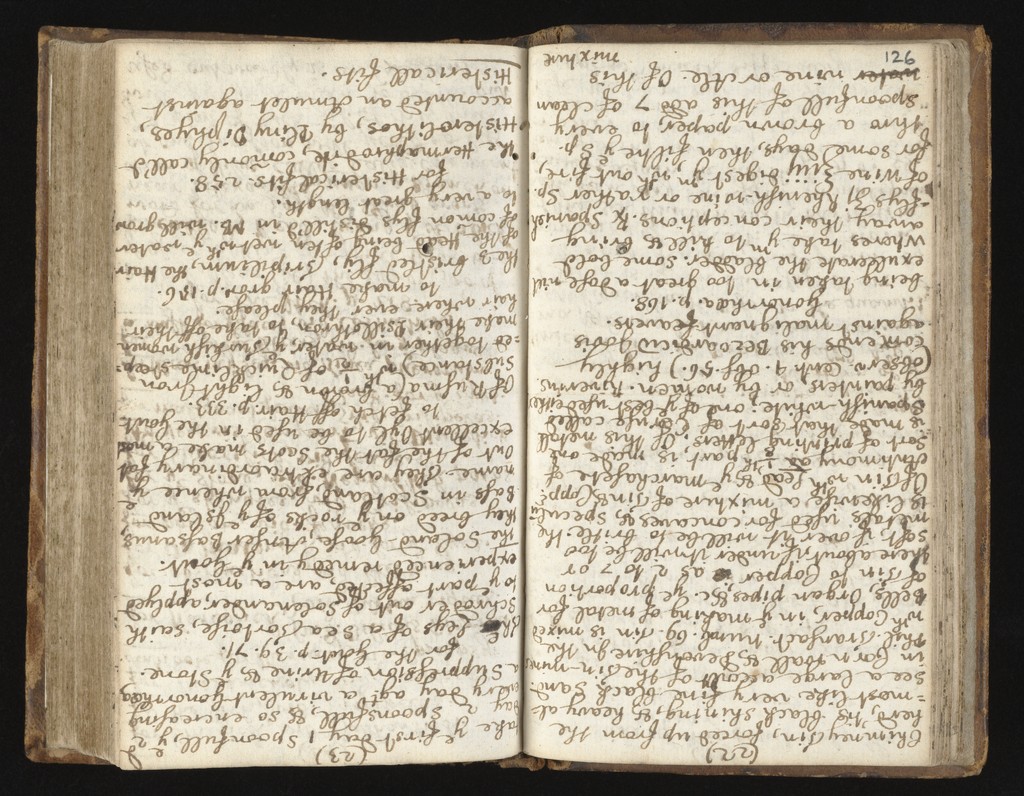 (22)
Chimney (Tin), forced up from the
herd, 'tis black shining & heavy al
=most like very fine black Sand.
see a large account of the Tin-mines
in Cornwall & Devonshire In the
Phil: Transact: Num: 69. Tin is mixed
wth Copper, in ye making of metal for
Bells, Organ pipes &c. ye proportion
of Tin to Copper as 2 to 7 or
there about, if under it will be too
soft if over it will be to brittle. the
metals used for concaves, & Specula
is likewise a mixture of Tin & Copp:
Of Tin wth lead & ye marchasite of
Antimony part is made one
sort of printing letters. Of this metall
is made that sort of Ceruse called
Spanish-white; one of ye best used either
by painters or by women. Riverius
(observ: Cent: 4. obs: 56.) highly
comends his Bezoardicu Jovis
against malignant feavers.
Gonorrhaea. p. 168.
being taken in too great a dose will
exulcerate the Bladder. some bold
Whores take ym to kill & bring
away their conceptions. ℞ Spanish
flys ʒi Rhenish-wine or rather Sp.
of Wine ℥iiij digest ym wthout fire,
for some days, then filtre ye Sp.
thro a brown paper, to every
spoonfull of this add 7 of clean
water wine or Ale. Of this
mixture
126
(23)
take ye first day 1 Spoonfull, ye 2d
day 2 Spoonfull, & so encreasing
every day agst a virulent gonorrhea
a Suppression of Urine & ye Stone.
for the Gout. p. 39. 71.
The Legs of a Sea Tortoise, saith
Schroder out of Solenander, applyed
to ye part affected are a most
experienced remedy in ye Gout.
the Soland Goose, Anser Bassanus,
they breed on ye rocks of ye Island
Bass in Scotland, from whence ye
name. They are extraordinary fat
out of the fat the Scots make a most
excellent Oil to be used in the Gout
to fetch off Hair. p. 333.
Of Rusma (a brown & light Iron
substance) wth of Quicklime steep-
=ed together in water, ye Turkish women
make their Psilothron, to take off their
hair where ever they please.
to make Hair grow. p. 186.
the 3 bristled fly, Tripilium, the Hair
of the Head being often wet wth ye water
of comon flys Distill'd in MB. will grow
to a very great length.
for Histericall fits. 258.
the Hermaphrodite, comonly call'd
Histerolithos, by Pliny Diphyes,
accounted an Amulet against
Histericall fits.